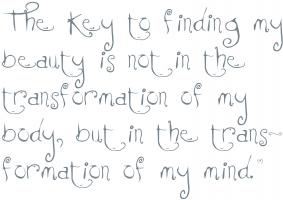 The key to finding my
beauty is not in the
transformation of my
body, but in the trans~
formation of my mind."